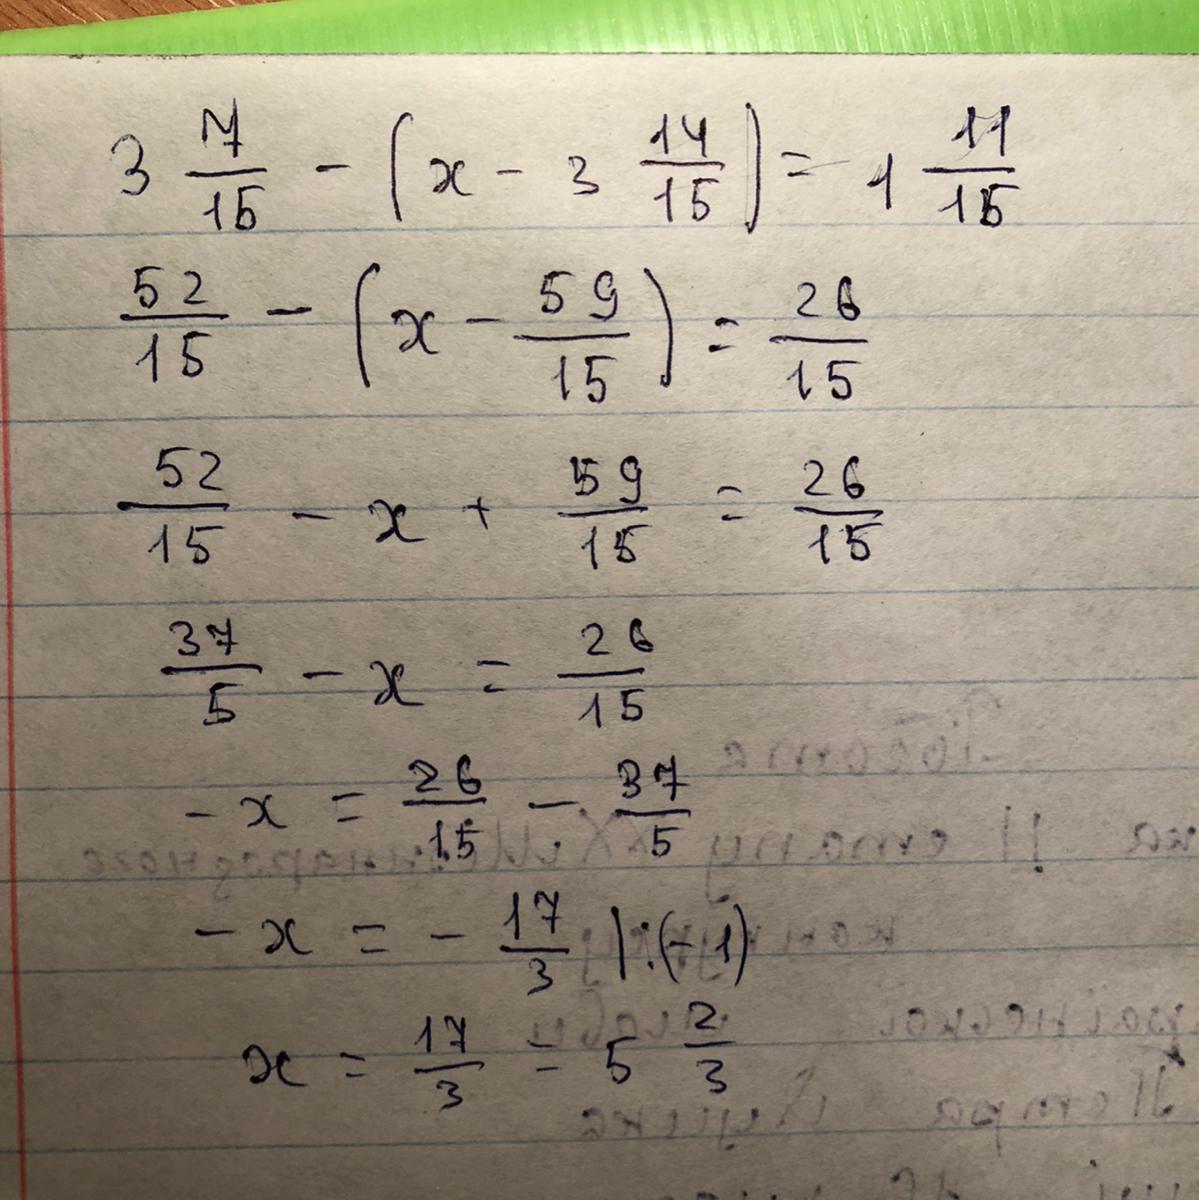 3 7/15 - (x - 3 14/15) = 1 11/15
52/15 - (x - 59/15) = 26/15
52/15 - x + 59/15 = 26/15
37/5 - x = 26/15
-x = 26/15 - 37/5
-x = - 17/3 |:(-1)
x = 17/3 = 5 2/3